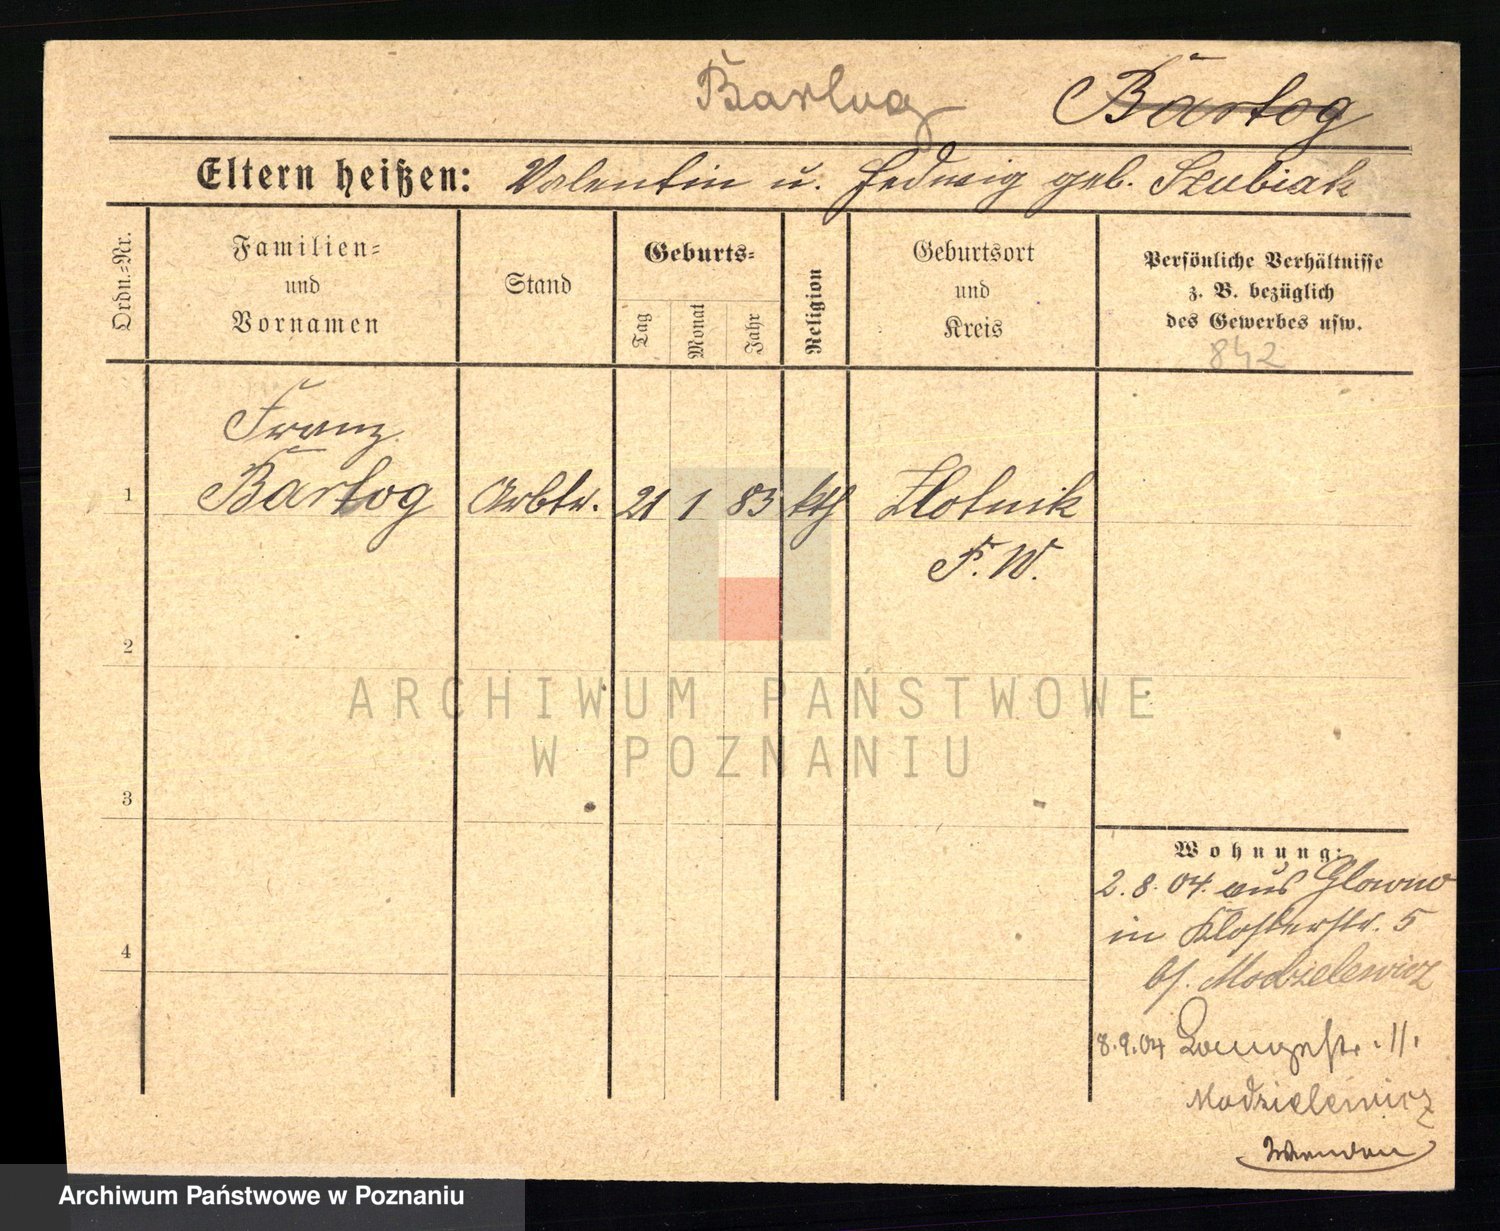 Barlog Bartog
Eltern heißen: Valentin u. Hedwig geb. Szubiak
Ordn.-Nr.
Familien-
und
Vornamen
Stand
Geburts-
Tag
Monat
Jahr
Religion
Geburtsort
und
Kreis
Persönliche Verhältnisse
z. B. bezüglich
des Gewerbes usw.
842
Franz
1 Bartog Arbtr. 21 1 83 kth Zlotnik
P. W.
2
ARCHIWUM PAŃSTWOWE
W POZNANIU
3
Wohnung:
2.8.04. aus Glowno
in Klosterstr. 5
4
bf. Modzelewicz
8.9.04 Langestr. 11.
Modzielewicz
Archiwum Państwowe w Poznaniu